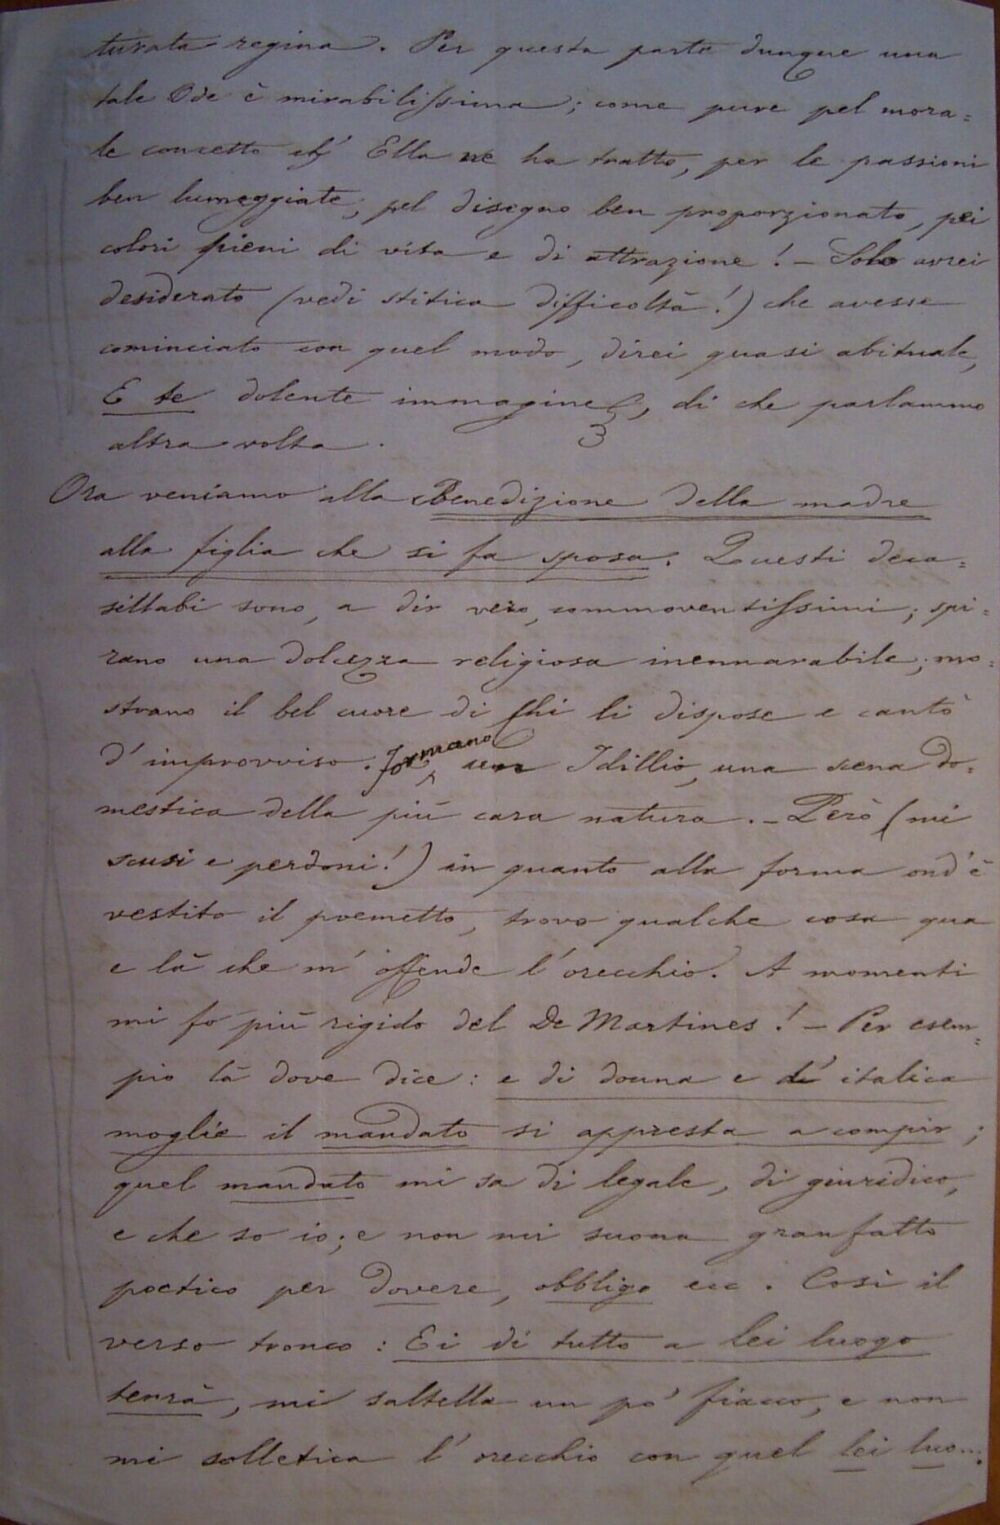 turata regina. Per questa parte dunque una
tale Ode è mirabilissima; come pure pel mora=
le concetto ch' Ella ne ha tratto, per le passioni
ben lumeggiate, pel disegno ben proporzionato, pei
colori pieni di vita e di attrazione! – Solo avrei
desiderato (vedi stitica difficoltà!) che avesse
cominciato con quel modo, direi quasi abituale,
E te dolente immagine, di che parlammo
altra volta.
Ora veniamo alla Benedizione della madre
alla figlia che si fa sposa. Questi deca=
sillabi sono, a dir vero, commoventissimi; spi=
rano una dolcezza religiosa inennarabile; mo=
strano il bel cuore di chi li dispose e cantò
d'improvviso. Formano un Idillio, una scena do=
mestica della più cara natura. – Però (mi
scusi e perdoni!) in quanto alla forma ond'è
vestito il poemetto, trovo qualche cosa qua
e là che m'offende l'orecchio. A momenti
mi fo più rigido del De Martines! – Per esem=
pio là dove dice: e di donna e d' italica
moglie il mandato si appresta a compir;
quel mandato mi sa di legale, di giuridico,
e che so io; e non mi suona gran fatto
poetico per dovere, obbligo ecc. Così il
verso tronco: Ei di tutto a lei luogo
terrà, mi saltella un po' fiacco, e non
mi solletica l'orecchio con quel lei luo...;